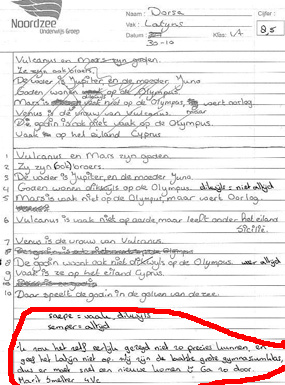 Noordzee
Onderwijs Groep
Naam: Dorse
Vak: Latijns
Datum:
30-10
Klas: VA
Cijfer:
8,5
Vulcanus en Mars zijn goden.
Ze zijn ook broers.
De vader is Jupiter, en de moeder Yuno
Goden wonen vaak op de Olympus.
Mars is vaak niet op de Olympus, voert oorlog.
Venus is de vrouw van Vulcanus. maar
De godin is niet vaak op de Olympus.
Vaak op het eiland Cyprus
1 Vulcanus en Mars zijn goden.
2 Zij zijn (ook) broers.
3 De vader is Jupiter, en de moeder Yuno.
4 Goden wonen dikwijls op de Olympus. dikwijls = niet altijd
5 Mars is vaak niet op de Olympus, maar voert Oorlog.
6 Vulcanus is vaak niet op aarde, maar leeft onder het eiland
Sicilië.
7 Venus is de vrouw van Vulcanus.
8 De godin woont ook niet dikwijls op de Olympus.
9 Vaak is ze op het eiland Cyprus.
10 Daar speelt de godin in de golven van de zee.
saepe = vaak, dikwijls
semper = altijd
Ik zou het zelf eerlijk gezegd niet zo precies kunnen, en
gaf het Latijn niet op. Wij zijn de laatste grote gymnasiumklas,
dus er moet snel een nieuwe komen :) Ga zo door.
Marit Smelter 4Vc